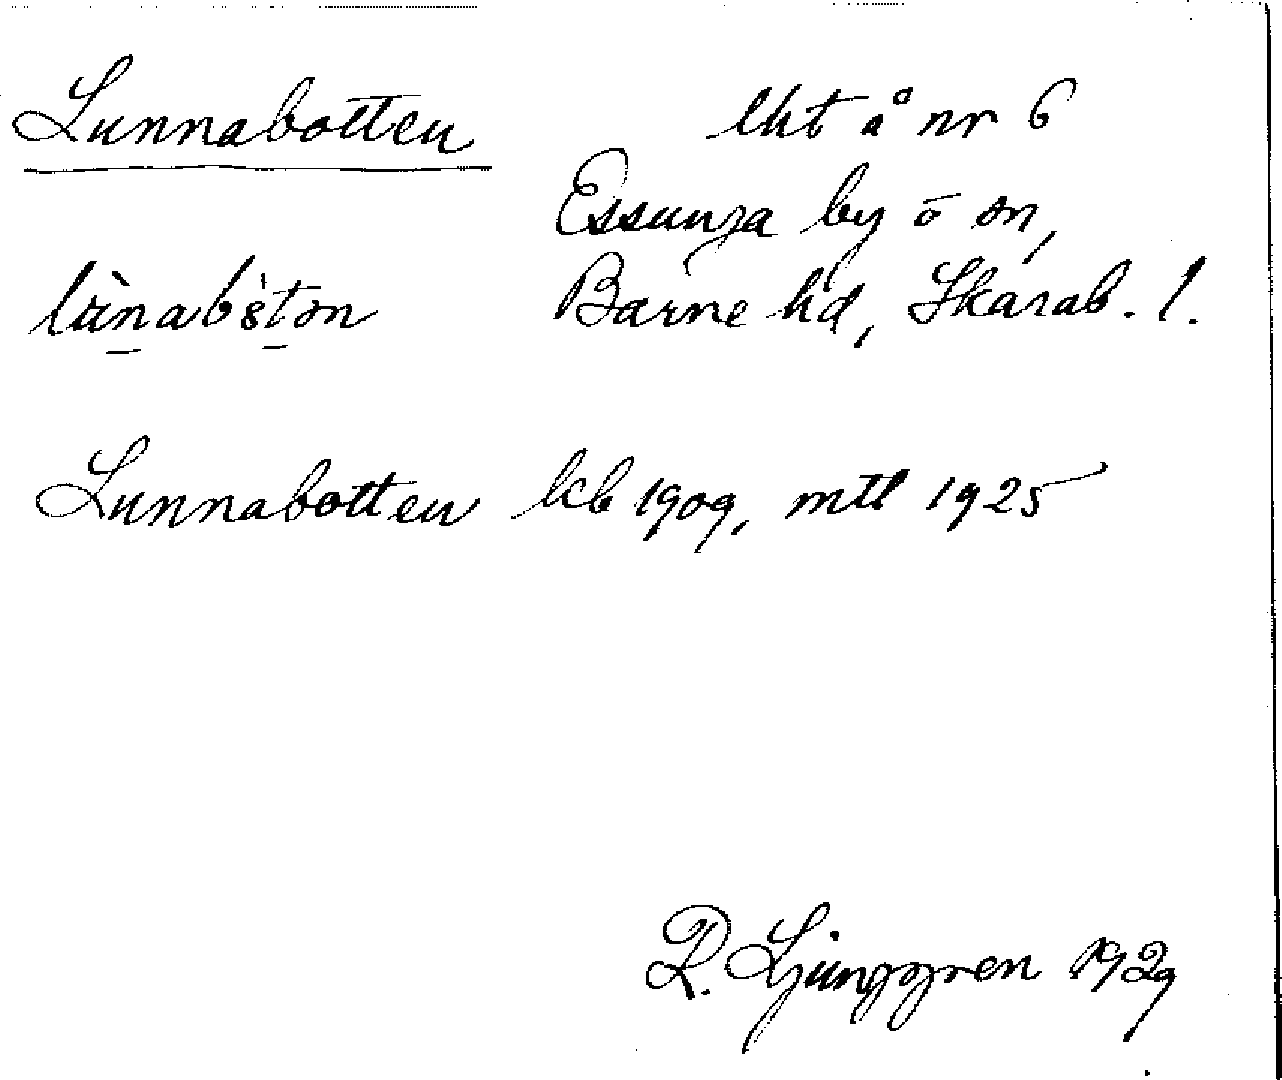 Lunnabotten
lht å nr 6
Essunga by o sn,
Barne hd, Skarab. l.
Lunnabotten kb 1909, mtl 1925
R. Ljunggren 1929